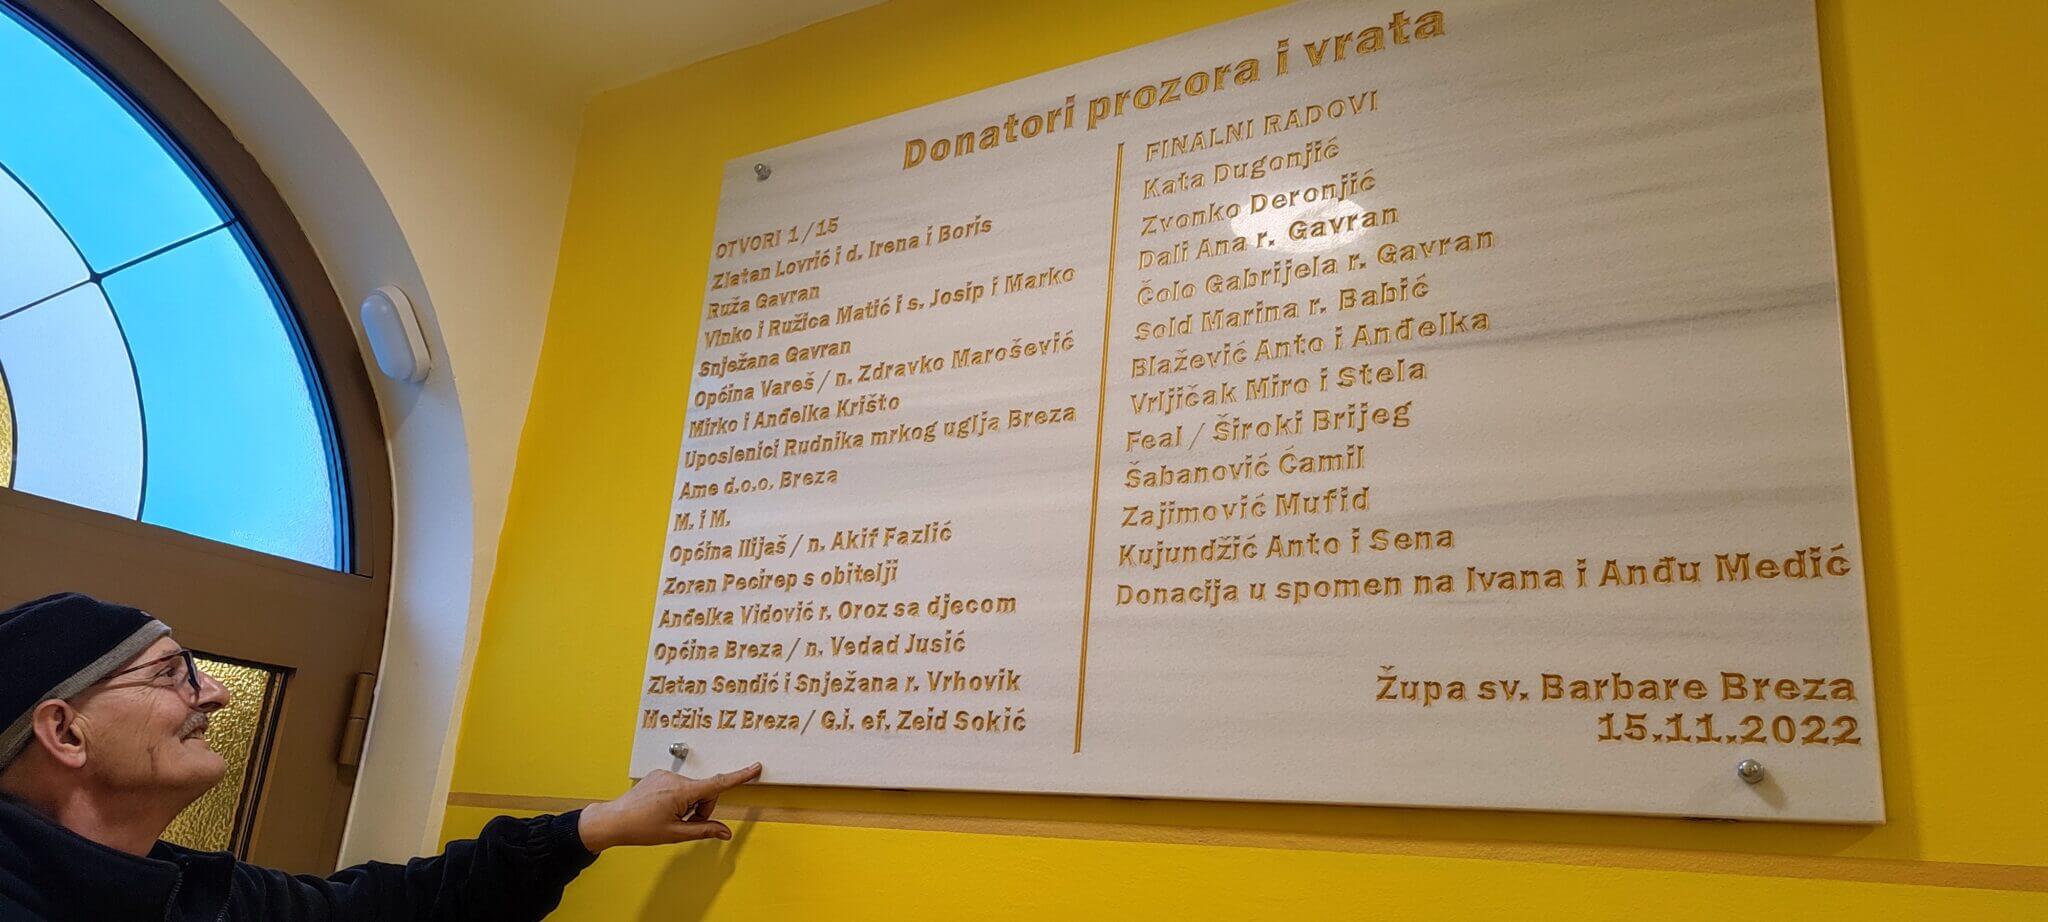 Donatori prozora i vrata
OTVORI 1/15
Zlatan Lovrić i d. Irena i Boris
Ruža Gavran
Vinko i Ružica Matić i s. Josip i Marko
Snježana Gavran
Općina Vareš / n. Zdravko Marošević
Mirko i Anđelka Krišto
Uposlenici Rudnika mrkog uglja Breza
Ame d.o.o. Breza
M. i M.
Općina Ilijaš / n. Akif Fazlić
Zoran Pecirep s obitelji
Anđelka Vidović r. Oroz sa djecom
Općina Breza / n. Vedad Jusić
Zlatan Sendić i Snježana r. Vrhovik
Medžlis IZ Breza / G.i. ef. Zeid Sokić
FINALNI RADOVI
Kata Dugonjić
Zvonko Deronjić
Dali Ana r. Gavran
Čolo Gabrijela r. Gavran
Sold Marina r. Babić
Blažević Anto i Anđelka
Vrljičak Miro i Stela
Feal / Široki Brijeg
Šabanović Ćamil
Zajimović Mufid
Kujundžić Anto i Sena
Donacija u spomen na Ivana i Anđu Medić
Župa sv. Barbare Breza
15.11.2022